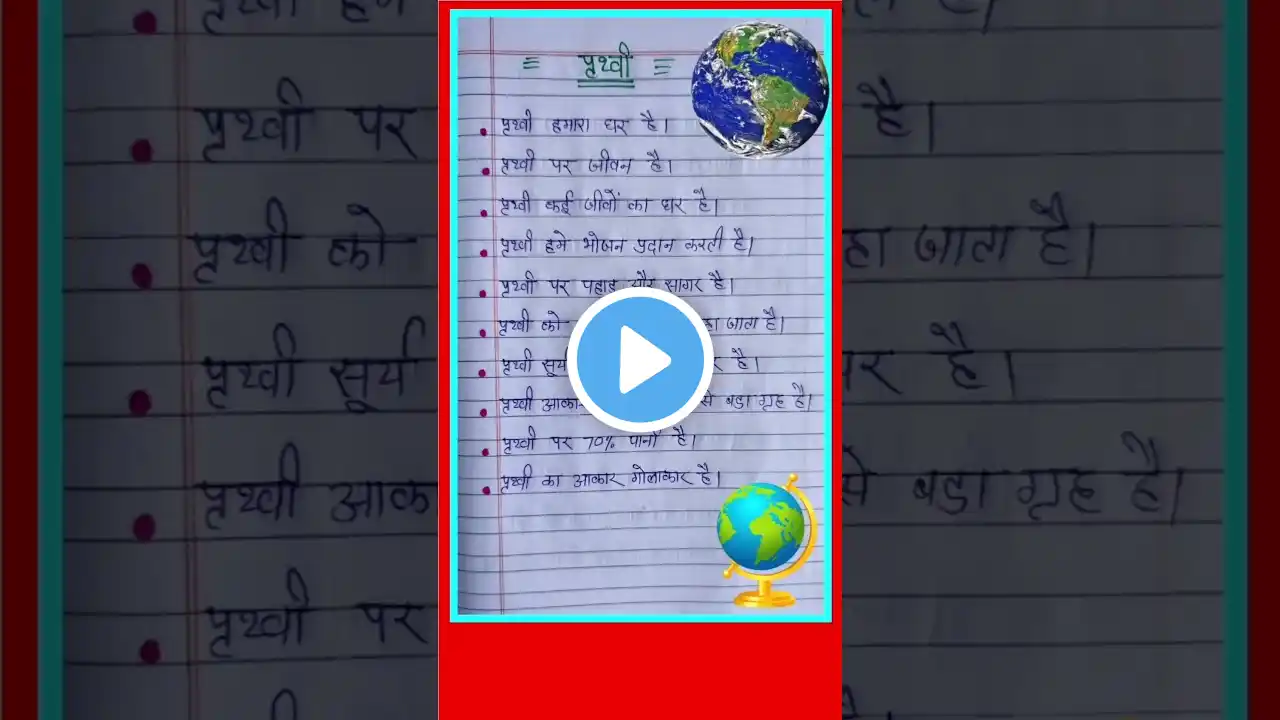 = पृथ्वी =
पृथ्वी हमारा घर है।
पृथ्वी पर जीवन है।
पृथ्वी कई जीवों का घर है।
पृथ्वी हमे भोजन प्रदान करती है।
पृथ्वी पर पहाड़ और सागर है।
पृथ्वी को जाता है।
पृथ्वी सूर्य है।
पृथ्वी से बडा ग्रह है।
पृथ्वी पर 70% पानी है।
पृथ्वी का आकार गोलाकार है।